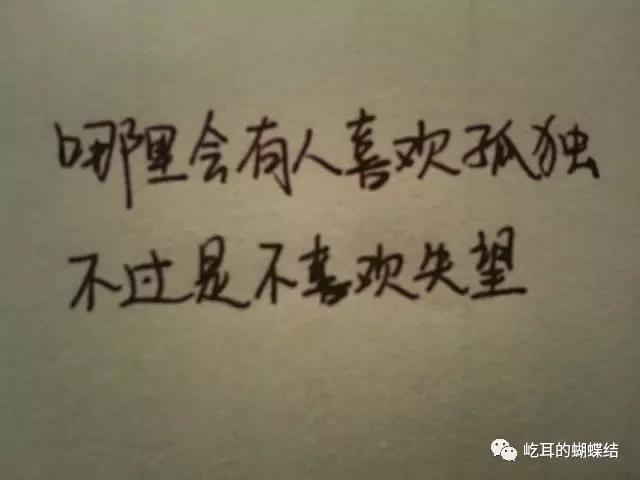 哪里会有人喜欢孤独
不过是不喜欢失望
屹耳的蝴蝶结